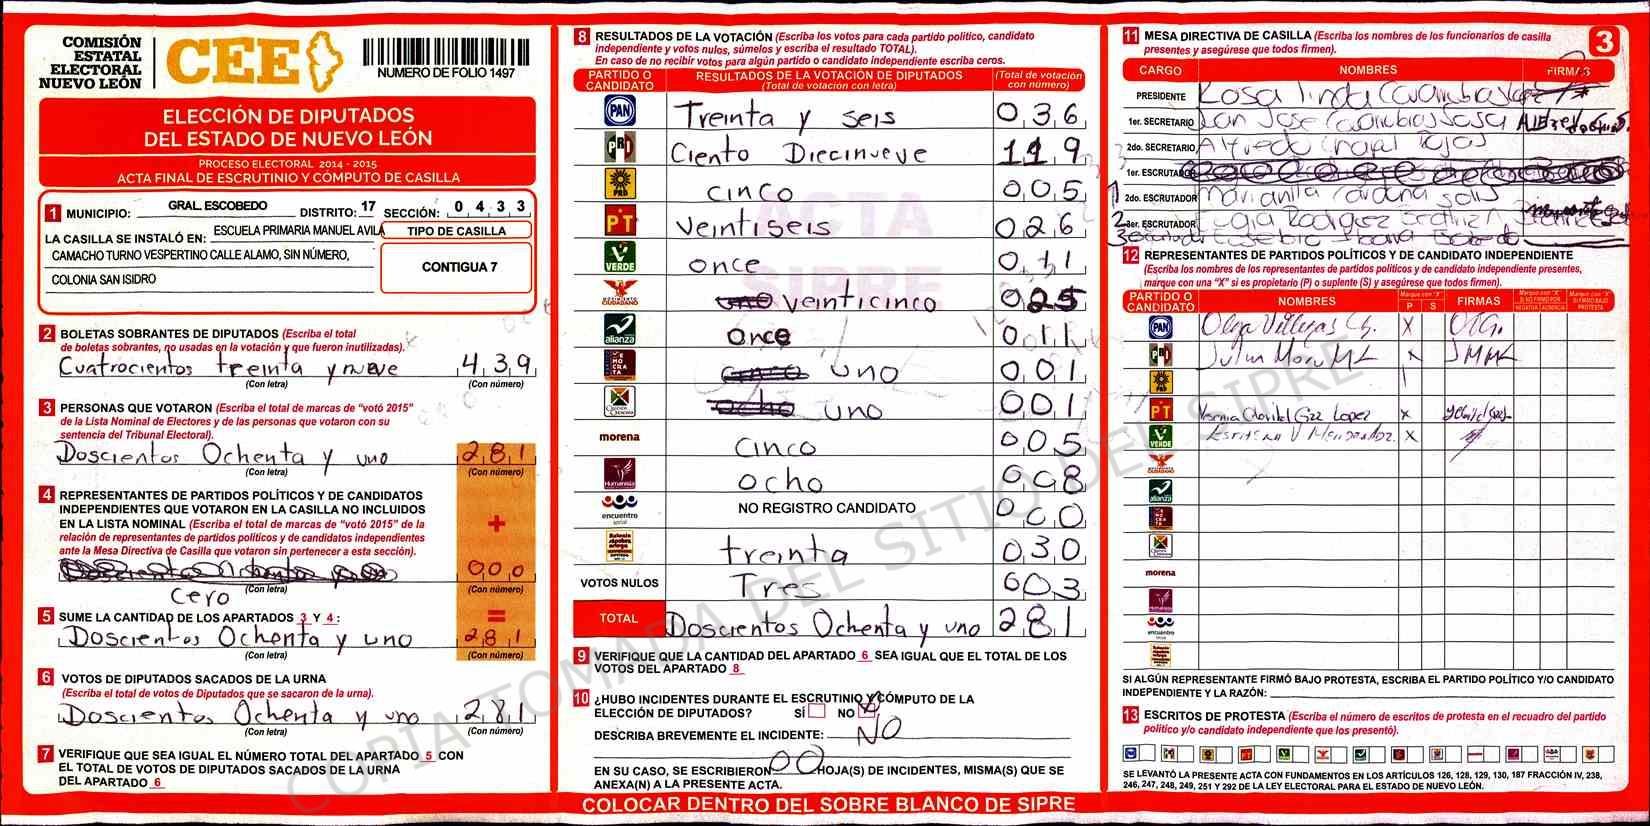 COMISIÓN
ESTATAL
ELECTORAL
NUEVO LEÓN
CEE
NUMERO DE FOLIO 1497
ELECCIÓN DE DIPUTADOS
DEL ESTADO DE NUEVO LEÓN
PROCESO ELECTORAL 2014 - 2015
ACTA FINAL DE ESCRUTINIO Y CÓMPUTO DE CASILLA
1 MUNICIPIO: GRAL. ESCOBEDO DISTRITO: 17 SECCIÓN: 0 4 3 3
LA CASILLA SE INSTALÓ EN: ESCUELA PRIMARIA MANUEL AVILA
CAMACHO TURNO VESPERTINO CALLE ALAMO, SIN NÚMERO,
COLONIA SAN ISIDRO
TIPO DE CASILLA
CONTIGUA 7
2 BOLETAS SOBRANTES DE DIPUTADOS (Escriba el total
de boletas sobrantes, no usadas en la votación y que fueron inutilizadas).
Cuatrocientos treinta y nueve 4 3 9
(Con letra) (Con número)
3 PERSONAS QUE VOTARON (Escriba el total de marcas de “votó 2015”
de la Lista Nominal de Electores y de las personas que votaron con su
sentencia del Tribunal Electoral).
Doscientos Ochenta y uno 2 8 1
(Con letra) (Con número)
4 REPRESENTANTES DE PARTIDOS POLÍTICOS Y DE CANDIDATOS
INDEPENDIENTES QUE VOTARON EN LA CASILLA NO INCLUIDOS
EN LA LISTA NOMINAL (Escriba el total de marcas de “votó 2015” de la
relación de representantes de partidos políticos y de candidatos independientes
ante la Mesa Directiva de Casilla que votaron sin pertenecer a esta sección).
+
0 0 0
(Con letra) (Con número)
cero
5 SUME LA CANTIDAD DE LOS APARTADOS 3 Y 4 :
=
Doscientos Ochenta y uno 2 8 1
(Con letra) (Con número)
6 VOTOS DE DIPUTADOS SACADOS DE LA URNA
(Escriba el total de votos de Diputados que se sacaron de la urna).
Doscientos Ochenta y uno 2 8 1
(Con letra) (Con número)
7 VERIFIQUE QUE SEA IGUAL EL NÚMERO TOTAL DEL APARTADO 5 CON
EL TOTAL DE VOTOS DE DIPUTADOS SACADOS DE LA URNA
DEL APARTADO 6
8 RESULTADOS DE LA VOTACIÓN (Escriba los votos para cada partido político, candidato
independiente y votos nulos, súmelos y escriba el resultado TOTAL).
En caso de no recibir votos para algún partido o candidato independiente escriba ceros.
PARTIDO O CANDIDATO
RESULTADOS DE LA VOTACIÓN DE DIPUTADOS
(Total de votación con letra)
(Total de votación con número)
PAN Treinta y seis 0 3 6
PRI Ciento Diecinueve 1 1 9
PRD cinco 0 0 5
PT veintiseis 0 2 6
VERDE once 0 1 1
MOVIMIENTO CIUDADANO uno veinticinco 0 2 5
alianza once 0 1 1
DEMOCRATA cinco uno 0 0 1
ocho uno 0 0 1
morena cinco 0 0 5
Humanista ocho 0 0 8
encuentro social NO REGISTRO CANDIDATO 0 0 0
treinta 0 3 0
VOTOS NULOS Tres 0 0 3
TOTAL Doscientos Ochenta y uno 2 8 1
ACTA
SIPRE
9 VERIFIQUE QUE LA CANTIDAD DEL APARTADO 6 SEA IGUAL QUE EL TOTAL DE LOS
VOTOS DEL APARTADO 8
10 ¿HUBO INCIDENTES DURANTE EL ESCRUTINIO Y CÓMPUTO DE LA
ELECCIÓN DE DIPUTADOS? SÍ NO X
DESCRIBA BREVEMENTE EL INCIDENTE: NO
EN SU CASO, SE ESCRIBIERON 00 HOJA(S) DE INCIDENTES, MISMA(S) QUE SE
ANEXA(N) A LA PRESENTE ACTA.
COLOCAR DENTRO DEL SOBRE BLANCO DE SIPRE
COPIA TOMADA DEL SITIO DEL SIPRE
11 MESA DIRECTIVA DE CASILLA (Escriba los nombres de los funcionarios de casilla
presentes y asegúrese que todos firmen).
3
CARGO NOMBRES FIRMAS
PRESIDENTE Rosa linda
1er. SECRETARIO Juan Jose Sosa
2do. SECRETARIO Alfredo Rojas
1er. ESCRUTADOR
1 2do. ESCRUTADOR Marianita Cardena solis
2 3er. ESCRUTADOR Rodriguez
3
12 REPRESENTANTES DE PARTIDOS POLÍTICOS Y DE CANDIDATO INDEPENDIENTE
(Escriba los nombres de los representantes de partidos políticos y de candidato independiente presentes,
marque con una “X” si es propietario (P) o suplente (S) y asegúrese que todos firmen).
PARTIDO O CANDIDATO
NOMBRES
Marque con "X"
P S
FIRMAS
Marque con "X" SI NO FIRMÓ POR
NEGATIVA AUSENCIA
Marque con "X" SI FIRMÓ BAJO PROTESTA
PAN Olga Villegas Ch. X
PRI X
PRD
PT Lopez X
VERDE X
MOVIMIENTO CIUDADANO
alianza
morena
Humanista
encuentro social
SI ALGÚN REPRESENTANTE FIRMÓ BAJO PROTESTA, ESCRIBA EL PARTIDO POLÍTICO Y/O CANDIDATO
INDEPENDIENTE Y LA RAZÓN:
13 ESCRITOS DE PROTESTA (Escriba el número de escritos de protesta en el recuadro del partido
político y/o candidato independiente que los presentó).
SE LEVANTÓ LA PRESENTE ACTA CON FUNDAMENTOS EN LOS ARTÍCULOS 126, 128, 129, 130, 187 FRACCIÓN IV, 238,
246, 247, 248, 249, 251 Y 292 DE LA LEY ELECTORAL PARA EL ESTADO DE NUEVO LEÓN.